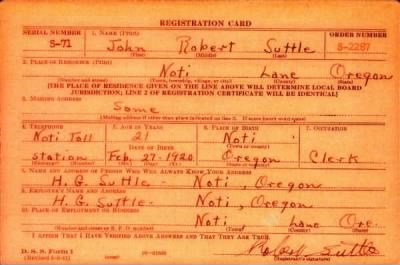 REGISTRATION CARD
SERIAL NUMBER 1. NAME (Print) ORDER NUMBER
S-71 John Robert Suttle S-2287
(First) (Middle) (Last)
2. PLACE OF RESIDENCE (Print)
Noti Lane Oregon
(Number and street) (Town, township, village, or city) (County) (State)
[THE PLACE OF RESIDENCE GIVEN ON THE LINE ABOVE WILL DETERMINE LOCAL BOARD
JURISDICTION; LINE 2 OF REGISTRATION CERTIFICATE WILL BE IDENTICAL]
3. MAILING ADDRESS
Same
[Mailing address if other than place indicated on line 2. If same insert word same]
4. TELEPHONE 5. AGE IN YEARS 6. PLACE OF BIRTH 7. OCCUPATION
Noti Toll 21 Noti
DATE OF BIRTH (Town or county)
station Feb. 27-1920 Oregon Clerk
(Mo.) (Day) (Yr.) (State or country)
8. NAME AND ADDRESS OF PERSON WHO WILL ALWAYS KNOW YOUR ADDRESS
H. G. Suttle - Noti, Oregon
9. EMPLOYER'S NAME AND ADDRESS
H. G. Suttle - Noti, Oregon
10. PLACE OF EMPLOYMENT OR BUSINESS
Noti Lane Ore.
(Number and street or R. F. D. number) (Town) (County) (State)
I AFFIRM THAT I HAVE VERIFIED ABOVE ANSWERS AND THAT THEY ARE TRUE.
D. S. S. Form 1 Robert Suttle